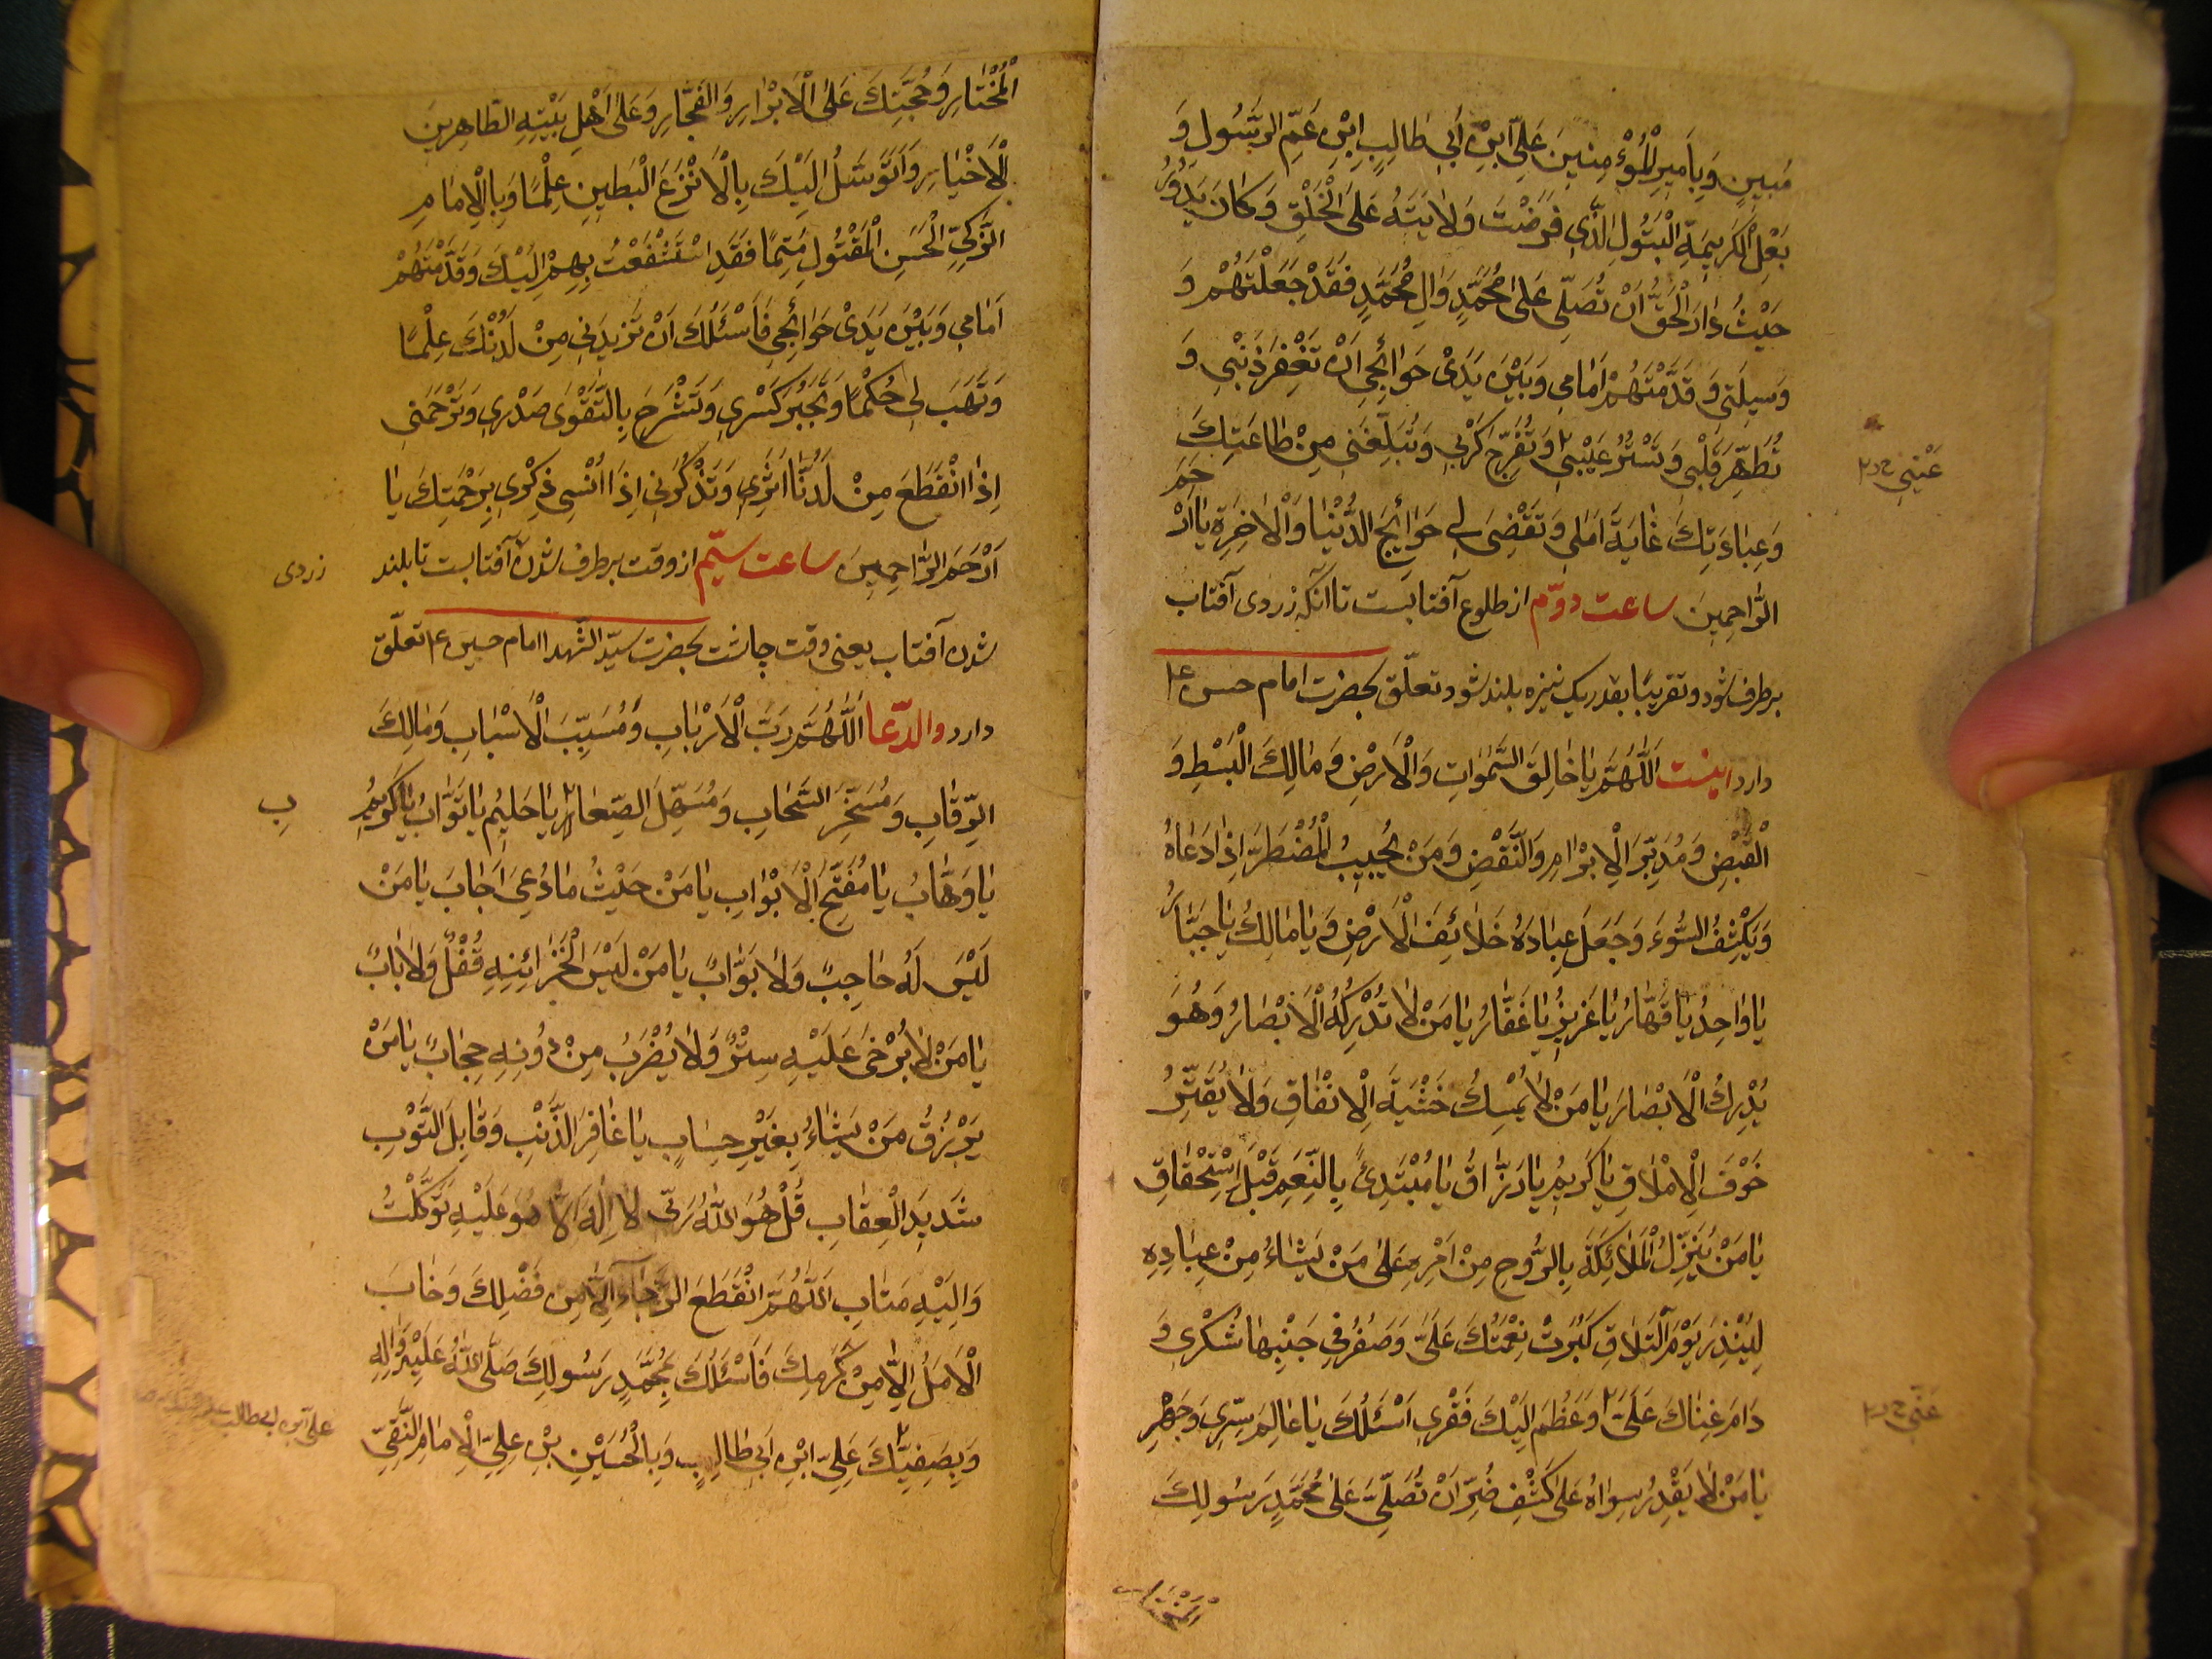 مُبينٍ وَبِاَميرِ الْمُؤْمِنينَ عَلِيِّ ابْنِ اَبي طالِبٍ ابْنِ عَمِّ الرَّسُولِ وَ
بَعْلِ الْكَريمَةِ الْبَتُولِ الَّذي فَرَضْتَ وَلايَتَهُ عَلَى الْخَلْقِ وَكانَ يَدُورُ
حَيْثُ دارَ الْحَقُّ اَنْ تُصَلِّيَ عَلى مُحَمَّدٍ وَالِ مُحَمَّدٍ فَقَدْ جَعَلْتُهُمْ وَ
وَسيلَتي وَقَدَّمْتُهُمْ اَمامي وَبَيْنَ يَدَيْ حَوائِجي اَنْ تَغْفِرَ ذَنْبي وَ
تُطَهِّرَ قَلْبي وَتَسْتُرَ عَيْبي وَتُفَرِّجَ كَرْبي وَتُبَلِّغَني مِنْ طاعَتِكَ
عَنّي خ د ٢
وَعِبادَتِكَ غايَةَ اَمَلي وَتَقْضِيَ لي حَوائِجَ الدُّنْيا وَالْاخِرَةِ يا اَرْحَمَ
الرَّاحِمينَ ساعت دوّم از طلوع آفتابست تا آنكه زردى آفتاب
برطرف شود و تقريبًا بقدر يك نيزه بلند شود و تعلّق بحضرت امام حسن ع
دارد اينست اَللّهُمَّ يا خالِقَ السَّمواتِ وَالْاَرْضِ وَمالِكَ الْبَسْطِ وَ
الْقَبْضِ وَمُدَبِّرَ الْاِبْرامِ وَالنَّقْضِ وَمَنْ يُجيبُ الْمُضْطَرَّ اِذا دَعاهُ
وَيَكْشِفُ السُّوءَ وَجَعَلَ عِبادَهُ خَلائِفَ الْاَرْضِ وَيا مالِكُ يا جَبّارُ
يا واحِدُ يا قَهّارُ يا عَزيزُ يا غَفّارُ يا مَنْ لا تُدْرِكُهُ الْاَبْصارُ وَهُوَ
يُدْرِكُ الْاَبْصارَ يا مَنْ لا يُمْسِكُ خَشْيَةَ الْاِنْفاقِ وَلا يُقَتِّرُ
خَوْفَ الْاِمْلاقِ يا كَريمُ يا رَزّاقُ يا مُبْتَدِئً بِالنِّعَمِ قَبْلَ اسْتِحْقاقِ
يا مَنْ يُنَزِّلُ الْمَلائِكَةَ بِالرُّوحِ مِنْ اَمْرِهِ عَلى مَنْ يَشاءُ مِنْ عِبادِهِ
لِيُنْذِرَ يَوْمَ التَّلاقِ كَبُرَتْ نِعْمَتُكَ عَلَيَّ وَصَغُرَ في جَنْبِها شُكْري وَ
دامَ غِناكَ عَلَيَّ وَعَظُمَ اِلَيْكَ فَقْري اَسْئَلُكَ يا عالِمَ سِرّي وَجَهْرِ
عَنّي خ د ٢
يا مَنْ لا يَقْدِرُ سِواهُ عَلى كَشْفِ ضُرّ اَنْ تُصَلِّيَ عَلى مُحَمَّدٍ رَسُولِكَ
الْمُخْتارِ
الْمُخْتارِ وَحُجَّتِكَ عَلَى الْاَبْرارِ وَالْفُجّارِ وَعَلى اَهْلِ بَيْتِهِ الطّاهِرينَ
الْاَخْيارِ وَاَتَوَسَّلُ اِلَيْكَ بِالْاَنْزَعِ الْبَطينِ عِلْمًا وَبِالْاِمامِ
الزَّكِيِّ الْحَسَنِ الْمَقْتُولِ سَمًّا فَقَدِ اسْتَشْفَعْتُ بِهِمْ اِلَيْكَ وَقَدَّمْتُهُمْ
اَمامي وَبَيْنَ يَدَيْ حَوائِجي فَاَسْئَلُكَ اَنْ تَزيدَني مِنْ لَدُنْكَ عِلْمًا
وَتَهَبَ لي حُكْمًا وَتَجْبُرَ كَسْري وَتَشْرَحَ بِالتَّقْوى صَدْري وَتَرْحَمَني
اِذَا انْقَطَعَ مِنْ الدُّنْيا اَثَري وَتَذْكُرَني اِذا اُنْسِيَ ذِكْري بِرَحْمَتِكَ يا
اَرْحَمَ الرّاحِمينَ ساعت سيّم از وقت برطرف شدن آفتابست تا بلند
زردى
شدن آفتاب يعنى وقت چاشت بحضرت سيّد الشّهدا امام حسين ع تعلّق
دارد والدّعا اَللّهُمَّ رَبَّ الْاَرْبابِ وَمُسَبِّبَ الْاَسْبابِ وَمالِكَ
الرِّقابِ وَمُسَخِّرَ السَّحابِ وَمُسَهِّلَ الصِّعابِ يا حَليمُ يا تَوّابُ يا كَريمُ
ب
يا وَهّابُ يا مُفَتِّحَ الْاَبْوابِ يا مَنْ حَيْثُ ما دُعِيَ اَجابَ يا مَنْ
لَيْسَ لَهُ حاجِبٌ وَلا بَوّابٌ يا مَنْ لَيْسَ لِخَزائِنِهِ قُفْلٌ وَلا بابٌ
يا مَنْ لا يُرْخى عَلَيْهِ سِتْرٌ وَلا يُضْرَبُ مِنْ دُونِهِ حِجابٌ يا مَنْ
يَرْزُقُ مَنْ يَشاءُ بِغَيْرِ حِسابٍ يا غافِرَ الذَّنْبِ وَقابِلَ التَّوْبِ
شَديدَ الْعِقابِ قُلْ هُوَ اللهُ رَبّي لا اِلهَ اِلّا هُوَ عَلَيْهِ تَوَكَّلْتُ
وَاِلَيْهِ مَتابِ اَللّهُمَّ انْقَطَعَ الرَّجاءُ اِلّا مِنْ فَضْلِكَ وَخابَ
الْاَمَلُ اِلّا مِنْ كَرَمِكَ فَاَسْئَلُكَ بِمُحَمَّدٍ رَسُولِكَ صَلَّى اللهُ عَلَيْهِ وَالِهِ
وَبِصَفِيِّكَ عَلِيِّ ابْنِ اَبي طالِبٍ وَبِالْحُسَيْنِ بْنِ عَلِيِّ الْاِمامِ التَّقِيِّ
علىّ بن ابى طالب